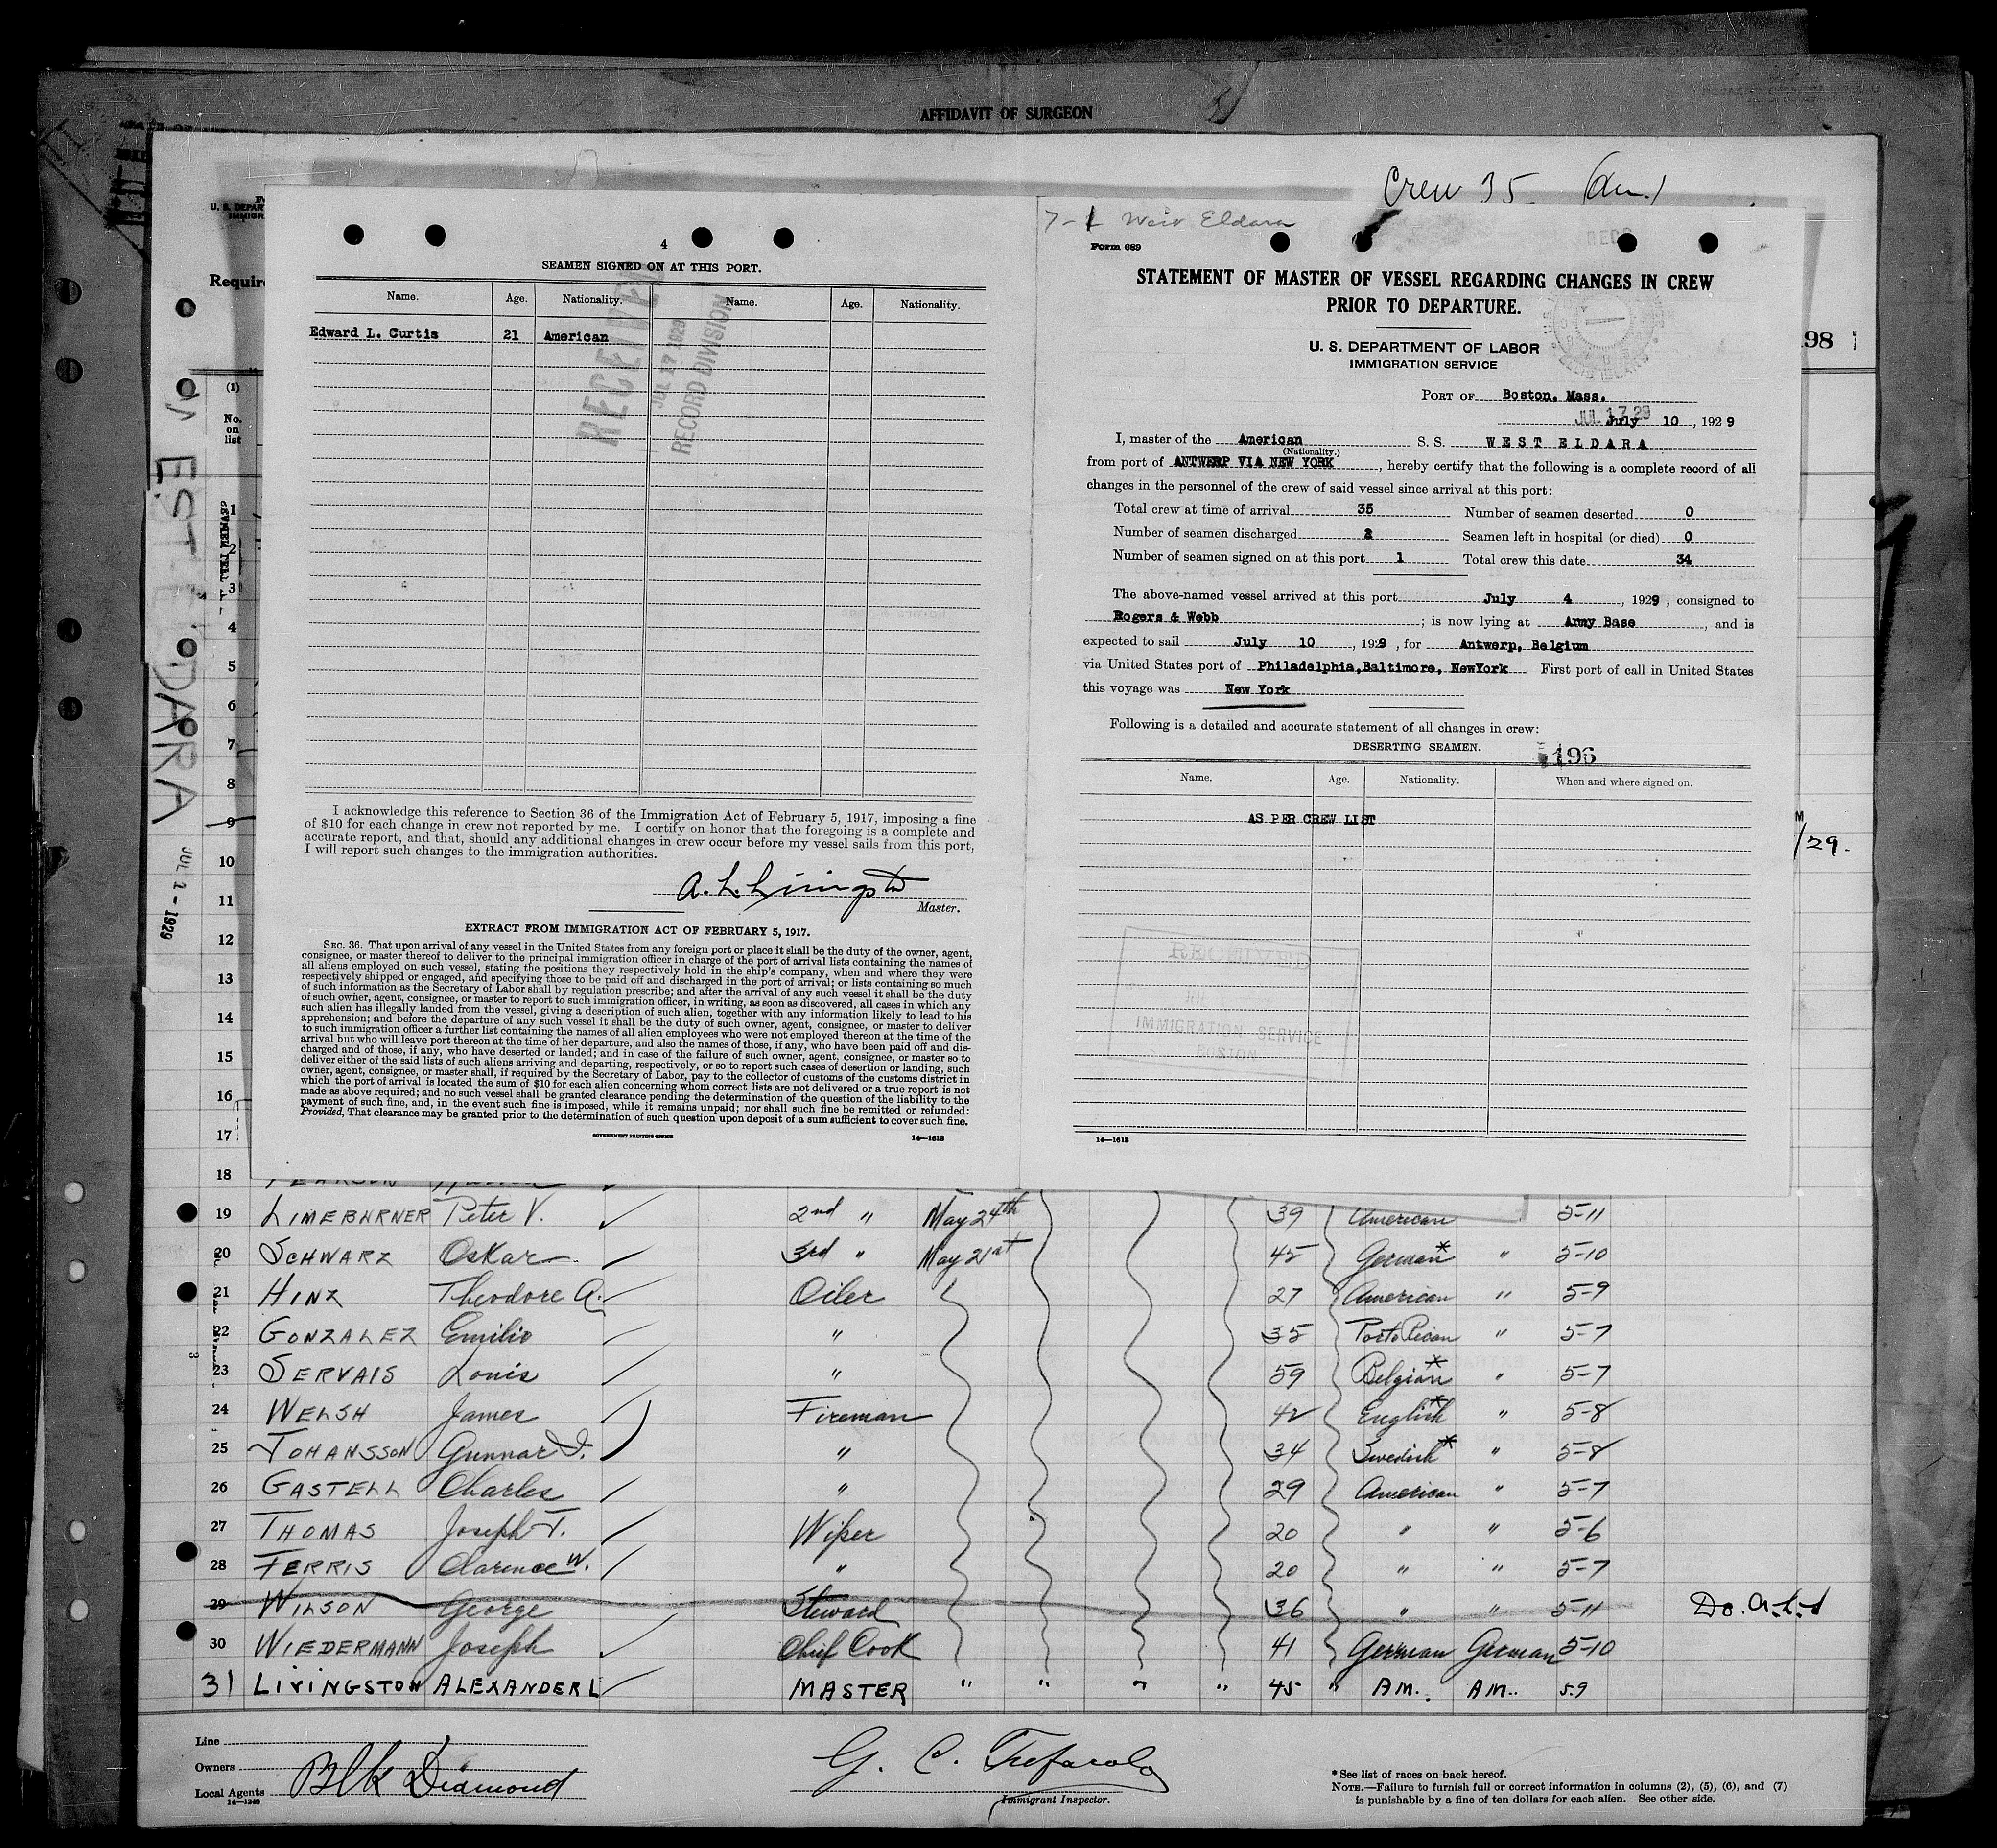 AFFIDAVIT OF SURGEON
Crew 35
U. S. DEPAR
IMMIGR
Require
(1)
No.
on
list
EST ELDARA
JUL 1 - 1929
4
SEAMEN SIGNED ON AT THIS PORT.
Name. Age. Nationality. Name. Age. Nationality.
Edward L. Curtis 21 American
RECEIVED
JUL 17 1929
RECORD DIVISION
I acknowledge this reference to Section 36 of the Immigration Act of February 5, 1917, imposing a fine
of $10 for each change in crew not reported by me. I certify on honor that the foregoing is a complete and
accurate report, and that, should any additional changes in crew occur before my vessel sails from this port,
I will report such changes to the immigration authorities.
A. L. Livingston
Master.
EXTRACT FROM IMMIGRATION ACT OF FEBRUARY 5, 1917.
SEC. 36. That upon arrival of any vessel in the United States from any foreign port or place it shall be the duty of the owner, agent,
consignee, or master thereof to deliver to the principal immigration officer in charge of the port of arrival lists containing the names of
all aliens employed on such vessel, stating the positions they respectively hold in the ship's company, when and where they were
respectively shipped or engaged, and specifying those to be paid off and discharged in the port of arrival; or lists containing so much
of such information as the Secretary of Labor shall by regulation prescribe; and after the arrival of any such vessel it shall be the duty
of such owner, agent, consignee, or master to report to such immigration officer, in writing, as soon as discovered, all cases in which any
such alien has illegally landed from the vessel, giving a description of such alien, together with any information likely to lead to his
apprehension; and before the departure of any such vessel it shall be the duty of such owner, agent, consignee, or master to deliver
to such immigration officer a further list containing the names of all alien employees who were not employed thereon at the time of the
arrival but who will leave port thereon at the time of her departure, and also the names of those, if any, who have been paid off and dis-
charged and of those, if any, who have deserted or landed; and in case of the failure of such owner, agent, consignee, or master so to
deliver either of the said lists of such aliens arriving and departing, respectively, or so to report such cases of desertion or landing, such
owner, agent, consignee, or master shall, if required by the Secretary of Labor, pay to the collector of customs of the customs district in
which the port of arrival is located the sum of $10 for each alien concerning whom correct lists are not delivered or a true report is not
made as above required; and no such vessel shall be granted clearance pending the determination of the question of the liability to the
payment of such fine, and, in the event such fine is imposed, while it remains unpaid; nor shall such fine be remitted or refunded:
Provided, That clearance may be granted prior to the determination of such question upon deposit of a sum sufficient to cover such fine.
GOVERNMENT PRINTING OFFICE 14—1613
7-1 West Eldara
Form 689
STATEMENT OF MASTER OF VESSEL REGARDING CHANGES IN CREW
PRIOR TO DEPARTURE.
U. S. DEPARTMENT OF LABOR
IMMIGRATION SERVICE
PORT OF Boston, Mass.
JUL 17 29
July 10, 1929
I, master of the American S. S. WEST ELDARA
(Nationality.)
from port of ANTWERP VIA NEW YORK, hereby certify that the following is a complete record of all
changes in the personnel of the crew of said vessel since arrival at this port:
Total crew at time of arrival 35 Number of seamen deserted 0
Number of seamen discharged 2 Seamen left in hospital (or died) 0
Number of seamen signed on at this port 1 Total crew this date 34
The above-named vessel arrived at this port July 4, 1929, consigned to
Rogers & Webb; is now lying at Army Base, and is
expected to sail July 10, 1929, for Antwerp, Belgium
via United States port of Philadelphia,Baltimore, NewYork First port of call in United States
this voyage was New York
Following is a detailed and accurate statement of all changes in crew:
DESERTING SEAMEN.
196
Name. Age. Nationality. When and where signed on.
AS PER CREW LIST
RECEIVED
IMMIGRATION SERVICE
14—1613
98
/29.
1
2
3
4
5
6
7
8
9
10
11
12
13
14
15
16
17
18 PEARSON
19 LIMEBURNER Peter V. 2nd " May 24th 39 American 5-11
20 SCHWARZ Oskar 3rd " May 21st 45 German* " 5-10
21 HINZ Theodore A. Oiler 27 American " 5-9
22 GONZALEZ Emilio " 35 Porto Rican " 5-7
23 SERVAIS Louis " 59 Belgian* " 5-7
24 WELSH James Fireman 42 English* " 5-8
25 JOHANSSON Gunnar I. " 34 Swedish* " 5-8
26 GASTELL Charles " 29 American " 5-7
27 THOMAS Joseph T. Wiper 20 " " 5-6
28 FERRIS Clarence W. " 20 " " 5-7
29 WILSON George Steward 36 " " 5-11 Do. A.L.L
30 WIEDERMANN Joseph Chief Cook 41 German German 5-10
31 LIVINGSTON ALEXANDER L MASTER " " " " 45 " AM. AM. 5-9
Line
Owners
Local Agents Blk Diamond
14—1240
G. C.
Immigrant Inspector.
* See list of races on back hereof.
NOTE.—Failure to furnish full or correct information in columns (2), (5), (6), and (7)
is punishable by a fine of ten dollars for each alien. See other side.